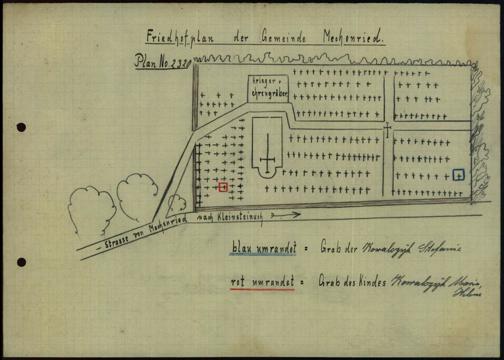 Friedhofplan der Gemeinde Mechenried.
Plan No. 2320
Krieger u.
Ehrengräber.
Strasse von Mechenried nach Kleinsteinach
blau umrandet = Grab der Kowalczyk Stefanie
rot umrandet = Grab des Kindes Kowalczyk Maria,